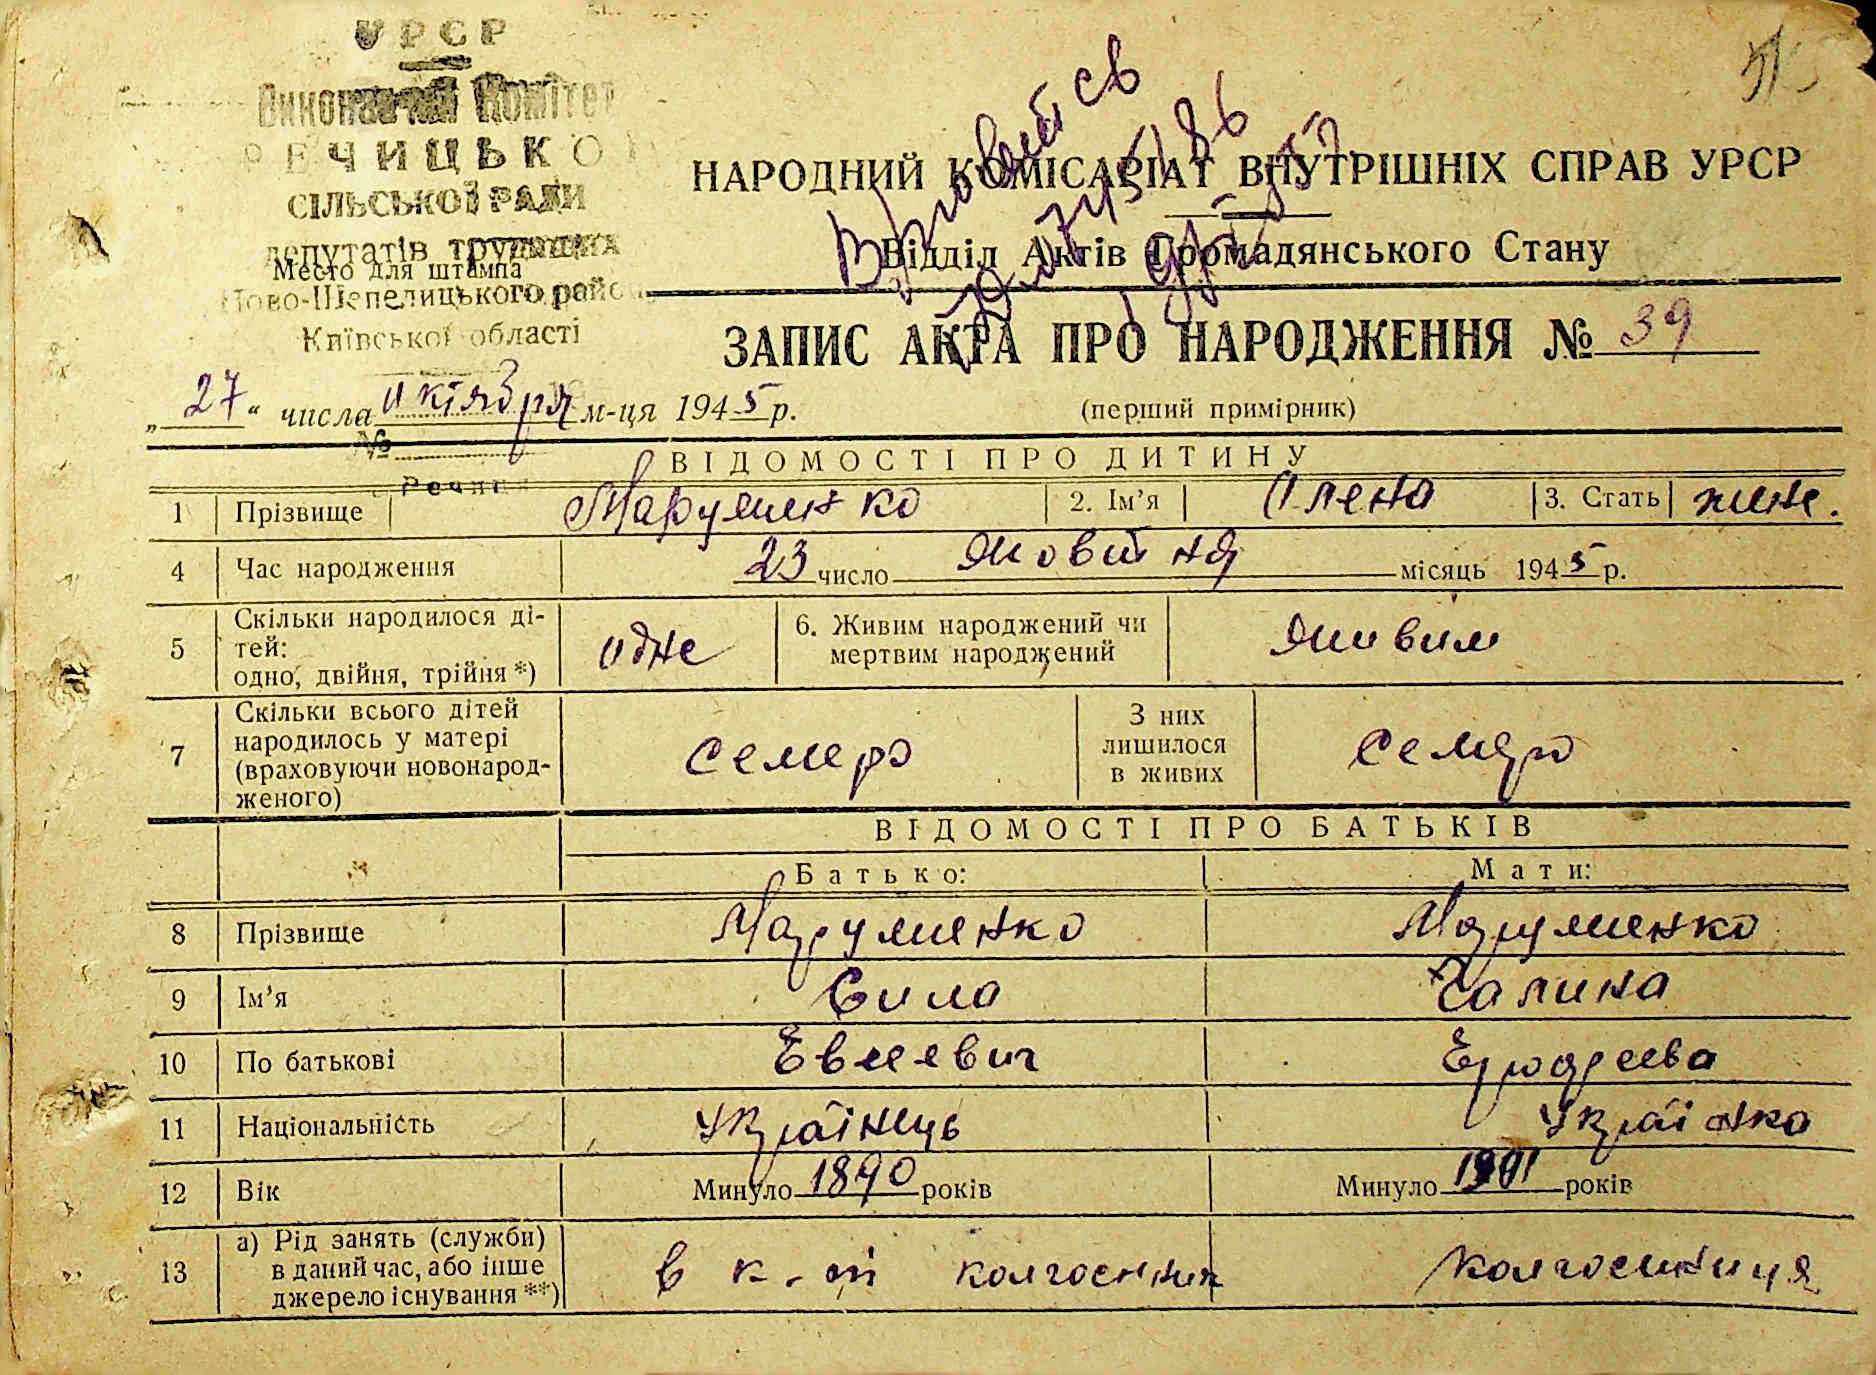 УРСР
Виконавчий Комітет
РЕЧИЦЬКОЇ
СІЛЬСЬКОЇ РАДИ
депутатів трудящих
Место для штампа
Ново-Шепелицького району
Київської області
НАРОДНИЙ КОМІСАРІАТ ВНУТРІШНІХ СПРАВ УРСР
Відділ Актів Громадянського Стану
ЗАПИС АКТА ПРО НАРОДЖЕННЯ № 39
„ 27 “ числа октября м-ця 1945 р.
(перший примірник)
№
ВІДОМОСТІ ПРО ДИТИНУ
1 Прізвище Марущенко 2. Ім’я Олена 3. Стать жин.
4 Час народження 23 число Жовтня місяць 1945 р.
5 Скільки народилося ді-
тей:
одно, двійня, трійня *) одне
6. Живим народжений чи
мертвим народжений Живим
7 Скільки всього дітей
народилось у матері
(враховуючи новонарод-
женого) семеро
З них
лишилося
в живих семеро
ВІДОМОСТІ ПРО БАТЬКІВ
Батько: Мати:
8 Прізвище Марущенко Марущенко
9 Ім’я Сила Галина
10 По батькові Евсеевич
11 Національність Українець Українка
12 Вік Минуло 1890 років Минуло 1901 років
13 а) Рід занять (служби)
в даний час, або інше
джерело існування **) в к-ті колгоспник колгоспниця